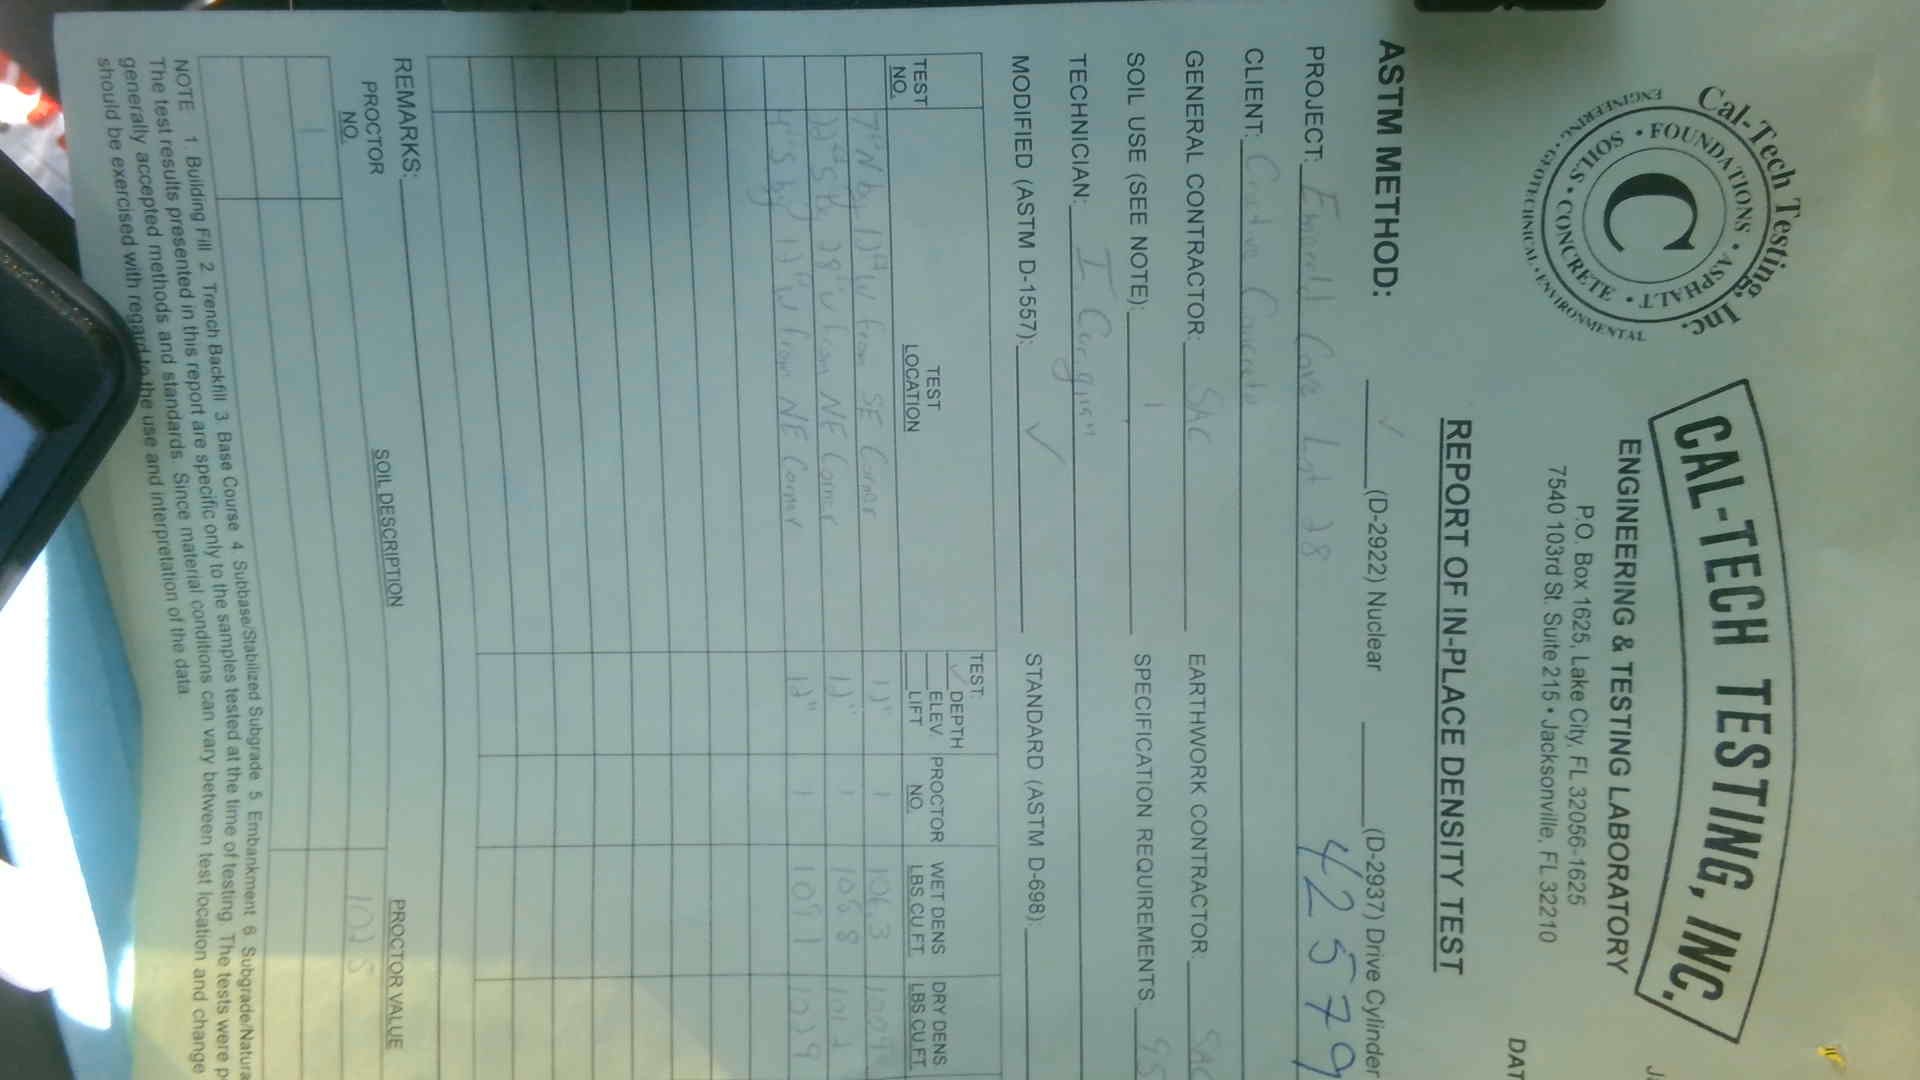 Cal-Tech Testing, Inc.
ENGINEERING • GEOTECHNICAL • ENVIRONMENTAL
SOILS • FOUNDATIONS • ASPHALT • CONCRETE •
C
CAL-TECH TESTING, INC.
ENGINEERING & TESTING LABORATORY
P.O. Box 1625, Lake City, FL 32056-1625
7540 103rd St. Suite 215 • Jacksonville, FL 32210
REPORT OF IN-PLACE DENSITY TEST
DAT
ASTM METHOD: ✓ (D-2922) Nuclear (D-2937) Drive Cylinder
PROJECT: Emerald Cove Lot 28 42579
CLIENT: Concrete
GENERAL CONTRACTOR: SAC EARTHWORK CONTRACTOR: SAC
SOIL USE (SEE NOTE): 1 SPECIFICATION REQUIREMENTS: 95
TECHNICIAN: I.
MODIFIED (ASTM D-1557): ✓ STANDARD (ASTM D-698):
TEST NO. TEST LOCATION TEST: ✓ DEPTH ELEV. LIFT PROCTOR NO. WET DENS. LBS.CU.FT. DRY DENS. LBS.CU.FT.
7' N by 12' W from SE Corner 12" 1 106.3
22' S by 28' W from NE Corner 12" 1 108.8
4' S by 12' W from NE Corner 12" 1 109.1 102.9
REMARKS:
PROCTOR NO. SOIL DESCRIPTION PROCTOR VALUE
1 102.5
NOTE 1. Building Fill 2. Trench Backfill 3. Base Course 4. Subbase/Stabilized Subgrade 5. Embankment 6. Subgrade/Natura
The test results presented in this report are specific only to the samples tested at the time of testing. The tests were p
generally accepted methods and standards. Since material conditions can vary between test location and change
should be exercised with regard to the use and interpretation of the data.